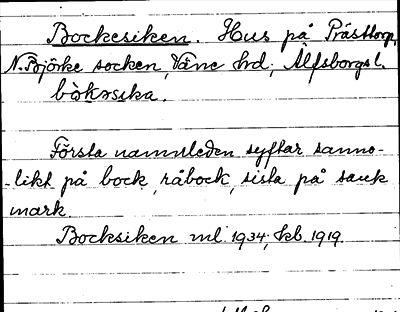 Bockesiken. Hus på Prästtorp,
N. Björke socken, Väne hd, Älfsborgs l.
bòkəsika.
Första namnleden syftar sanno-
-likt på bock, råbock, sista på sank
mark.
Bocksiken ml. 1934, kb. 1919.